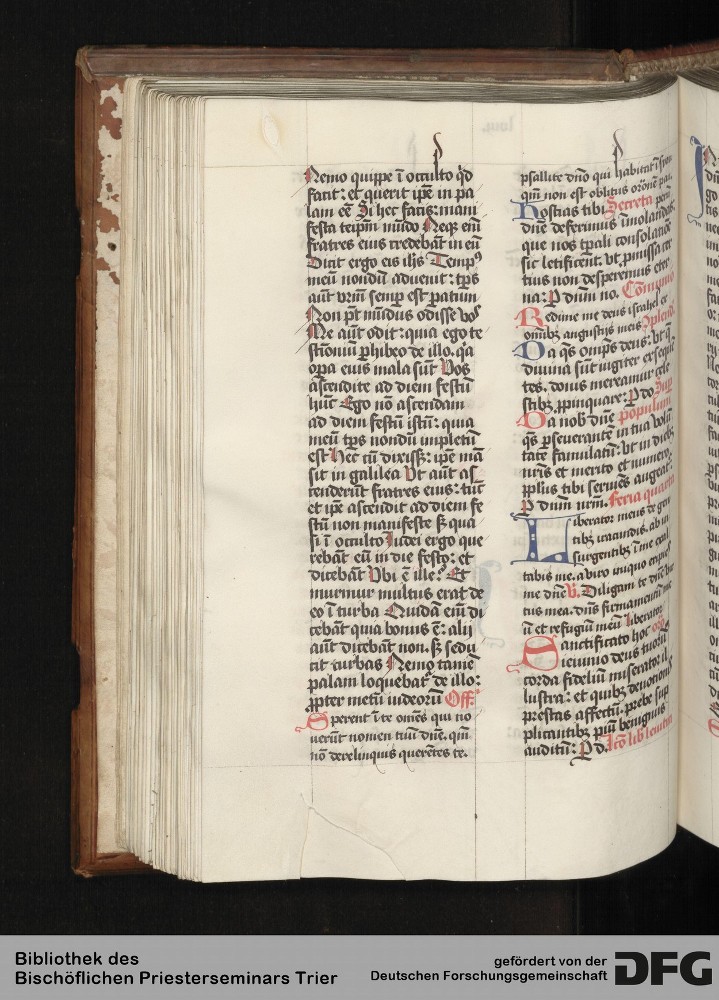 Nemo quippe ī occulto q̄d
facit: et querit ip̄e in pa
lam eē Si hec facis: mani
festa teip̄m mūdo Neqȝ eni̅
fratres eius credebāt in eū
Dicit ergo eis ih̄s Tempꝰ
meū nondū aduenit: tp̄s
aūt vr̄m semp̄ est paratum
Non pt̄ mūdus odisse vos
Me aūt odit: quia ego te
stīoniū ꝑhibeo de illo. q̄a
oꝑa eius mala sūt Vos
ascendite ad diem festū
hūc Ego nō ascendam
ad diem festū istū: quia
meū tp̄s nondū impletū
est Hec cū dixiss̄: ip̄e mā
sit in galilea Vt aūt as
cenderūt fratres eius: tūc
et ip̄e ascendit ad diem fe
stū non manifeste sꝫ qua
si ī occulto Iudei ergo que
rebāt eū in die festo: et
dicebāt Vbi ē ille: Et
murmur multus erat de
eo ī turba Quidā eni̅ di
cebāt quia bonus ē: alij
aūt dicebāt non. sꝫ sedu
cit turbas Nemo tamē
palam loquebat̄ de illo:
ꝓpter metū iudeorū Off.
Sperent ī te om̄es qui no
uerūt nomen tuū dn̄e. qm̄
nō derelinquis querētes te.
psallite dn̄o qui habitat ī syon
qm̄ non est oblitus orōnē pau
Hostias tibi Secreta ꝑerū
dn̄e deferimus īmolandas.
que nos tp̄ali consolatiōe
sic letificent. vt ꝓmissa cer
cius non desperemus eter
na: P dn̄m no. Cōmunio
Redime me deus israhel ex
omībȝ angustijs meis Gplen̄d
Da q̄s omp̄s deus: vt q̄
diuina sūt iugiter exsequē
tes. donis mereamur cele
stibȝ ꝓpinquare: P do Suꝑ
Da nob̄ dn̄e populum
q̄s ꝑseuerantē in tua volū
tate famulatū: vt in diebȝ
nr̄is et merito et numero.
pp̄lus tibi seruies augeat̄.
P dn̄m nr̄m. Feria quarta
Liberator meus de gen
tibȝ iracundis. ab in
surgentibȝ ī me exal
tabis me. a viro iniquo eripies
me dn̄e V. Diligam te dn̄e vir
tus mea. dn̄s firmamentū me
ū et refugiū meū Liberator
Sanctificato hoc cōl
ieiunio deus tuorū
corda fideliū miserator il
lustra: et quibȝ deuotionis
prestas affectū. prebe sup
plicantibȝ piū benignus
auditū: P d. Lcō lib leuitici
Bibliothek des
Bischöflichen Priesterseminars Trier
gefördert von der
Deutschen Forschungsgemeinschaft
DFG